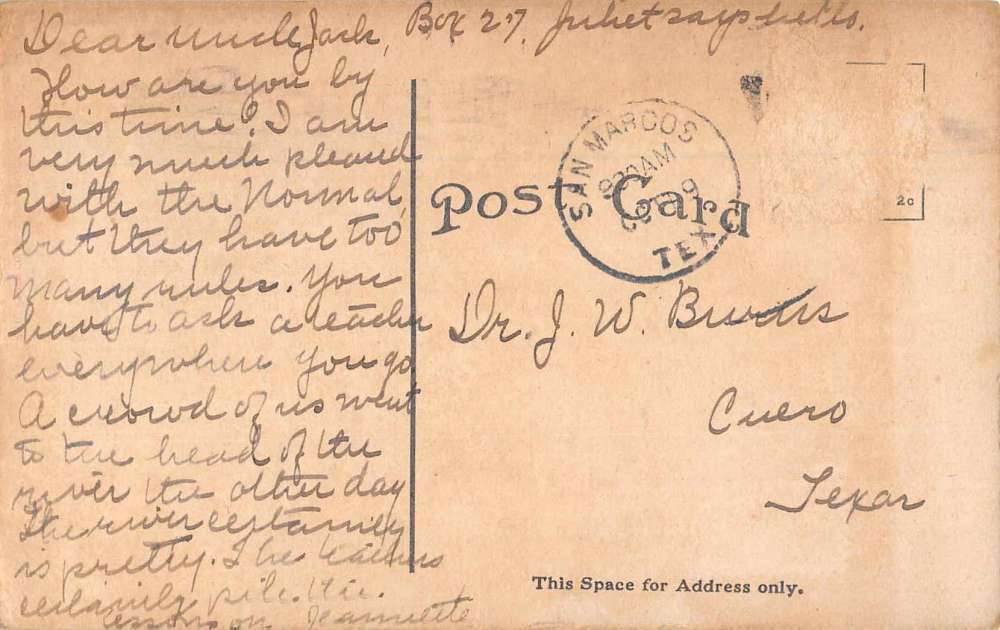 Dear Uncle Jack, Box 27, Juliet says hello.
How are you by
this time? I am
very much pleased
with the Normal,
but they have too
many rules. You
have to ask a teacher
everywhere you go
A crowd of us went
to the head of the
river the other day
The river certainly
is pretty. The teachers
certainly pile the
lessons on Jeannette
SAN MARCOS
AM
TEX
2c
Post Card
Dr. J. W. Burns
Cuero
Texas
This Space for Address only.